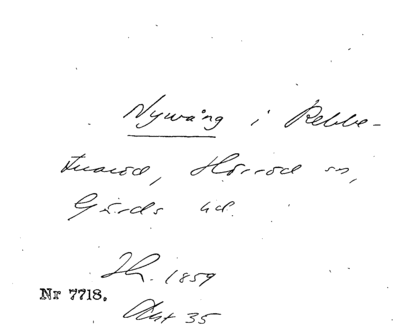 Nywång i Rebbe-
tuaröd, Hörröd sn,
Gärds hd.
Jh. 1859
Nr 7718.
Akt 35